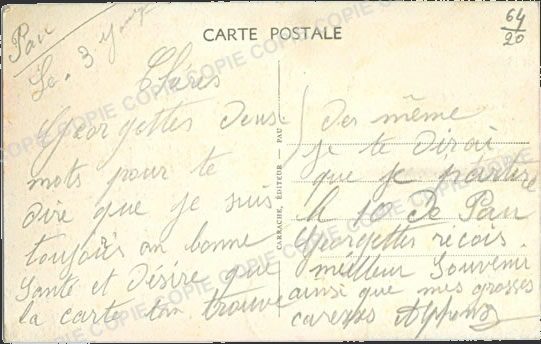 CARTE POSTALE
64
20
Pau
Le. 3.
Chères
Georgettes deux
mots pour te
dire que je suis
toujours en bonne
Santé et Désire que
la carte ton trouve
des même
je te dirai
que je partire
le 10 De Pau
Georgettes recois.
meilleur Souvenir
ainsi que mes grosses
caresses Alphonse
CARRACHE, ÉDITEUR — PAU
COPIE COPIE COPIE COPIE COPIE COPIE